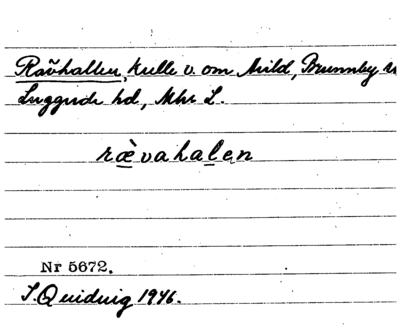 Rävhallen, kulle v. om Arild, Brunnby sn
Luggude hd, Mhs L.
ræ̀vahalen
Nr 5672.
S. Quiding 1946.